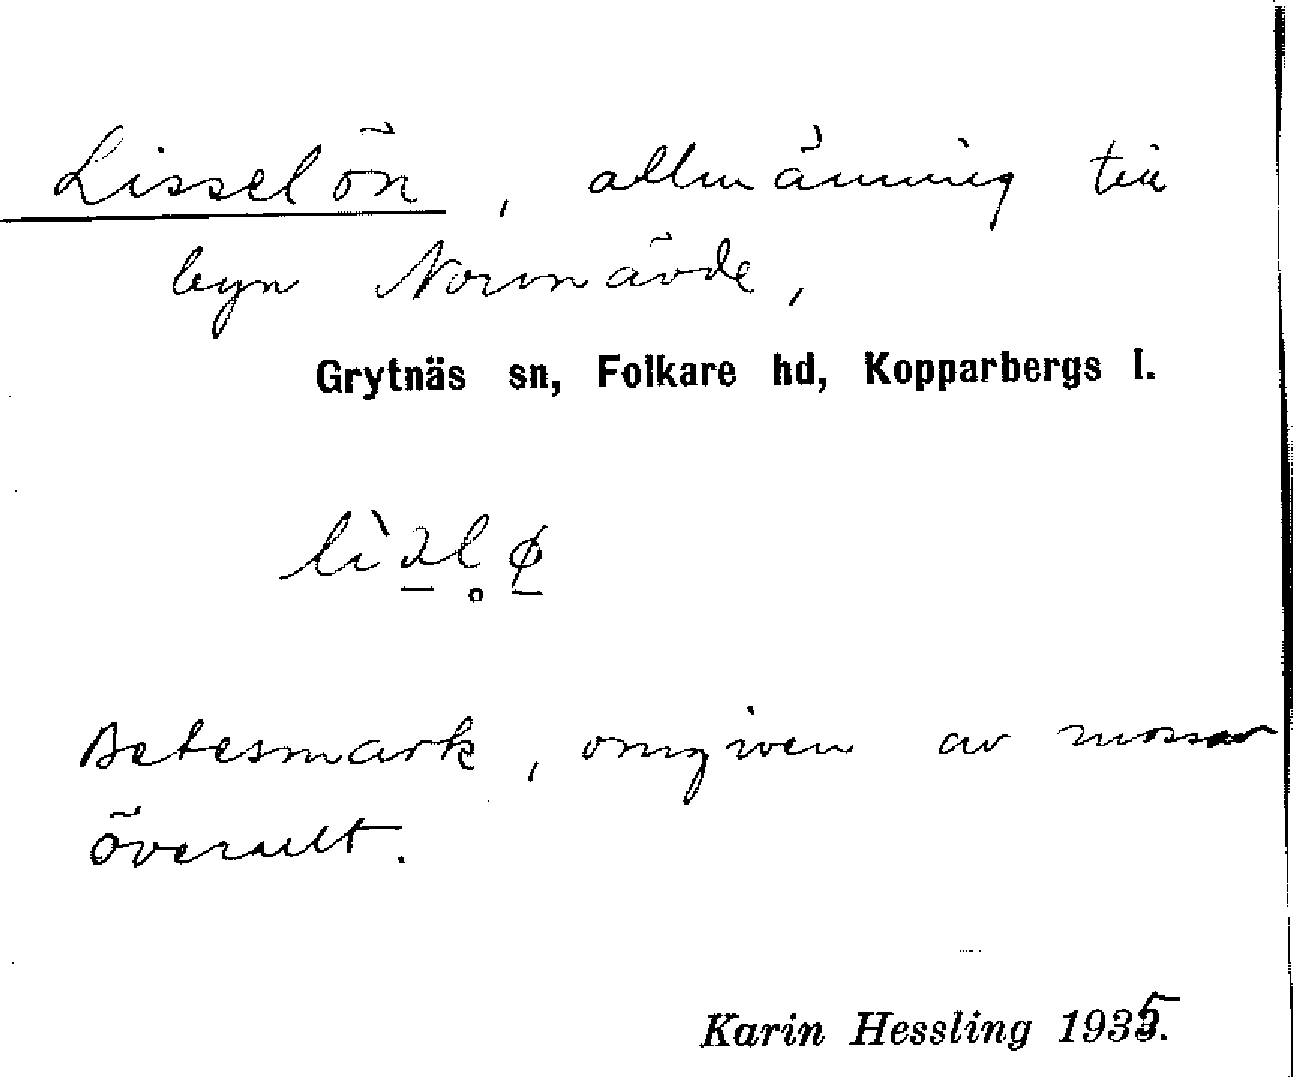 Lisselön, allmänning till
byn Norrnävde,
Grytnäs sn, Folkare hd, Kopparbergs l.
Betesmark, omgiven av mossar
överallt.
Karin Hessling 1935.